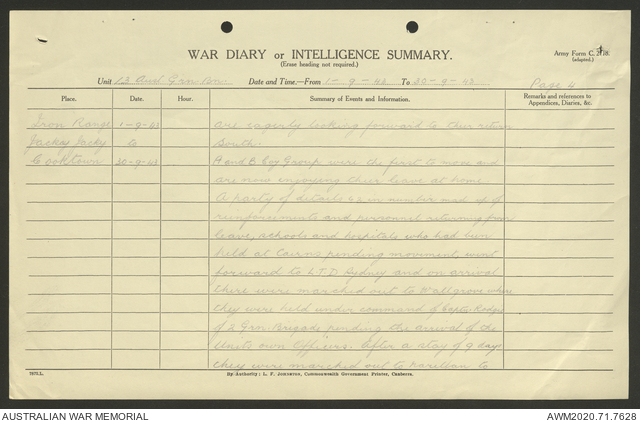 WAR DIARY or INTELLIGENCE SUMMARY.
(Erase heading not required.)
Army Form C. 2118.
(adapted.)
Unit 13 Aust Grn Bn. Date and Time.—From 1-9-43 To 30-9-43 Page 4
Place. Date. Hour. Summary of Events and Information. Remarks and references to Appendices, Diaries, &c.
Iron Range 1-9-43 are eagerly looking forward to their return
Jacky Jacky to South.
Cooktown 30-9-43 A and B Coy Group were the first to move and
are now enjoying their leave at home.
A party of details 42 in number made up of
reinforcements and personnel returning from
leave, schools and hospitals who had been
held at Cairns pending movement, went
forward to L.T.D Sydney and on arrival
there were marched out to Wallgrove where
they were held under command of Capt. Rodgers
of 2 Grn Brigade pending the arrival of the
Units own Officers. After a stay of 9 days
they were marched out to Narellan to
By Authority: L. F. Johnston, Commonwealth Government Printer, Canberra.
AUSTRALIAN WAR MEMORIAL
AWM2020.71.7628